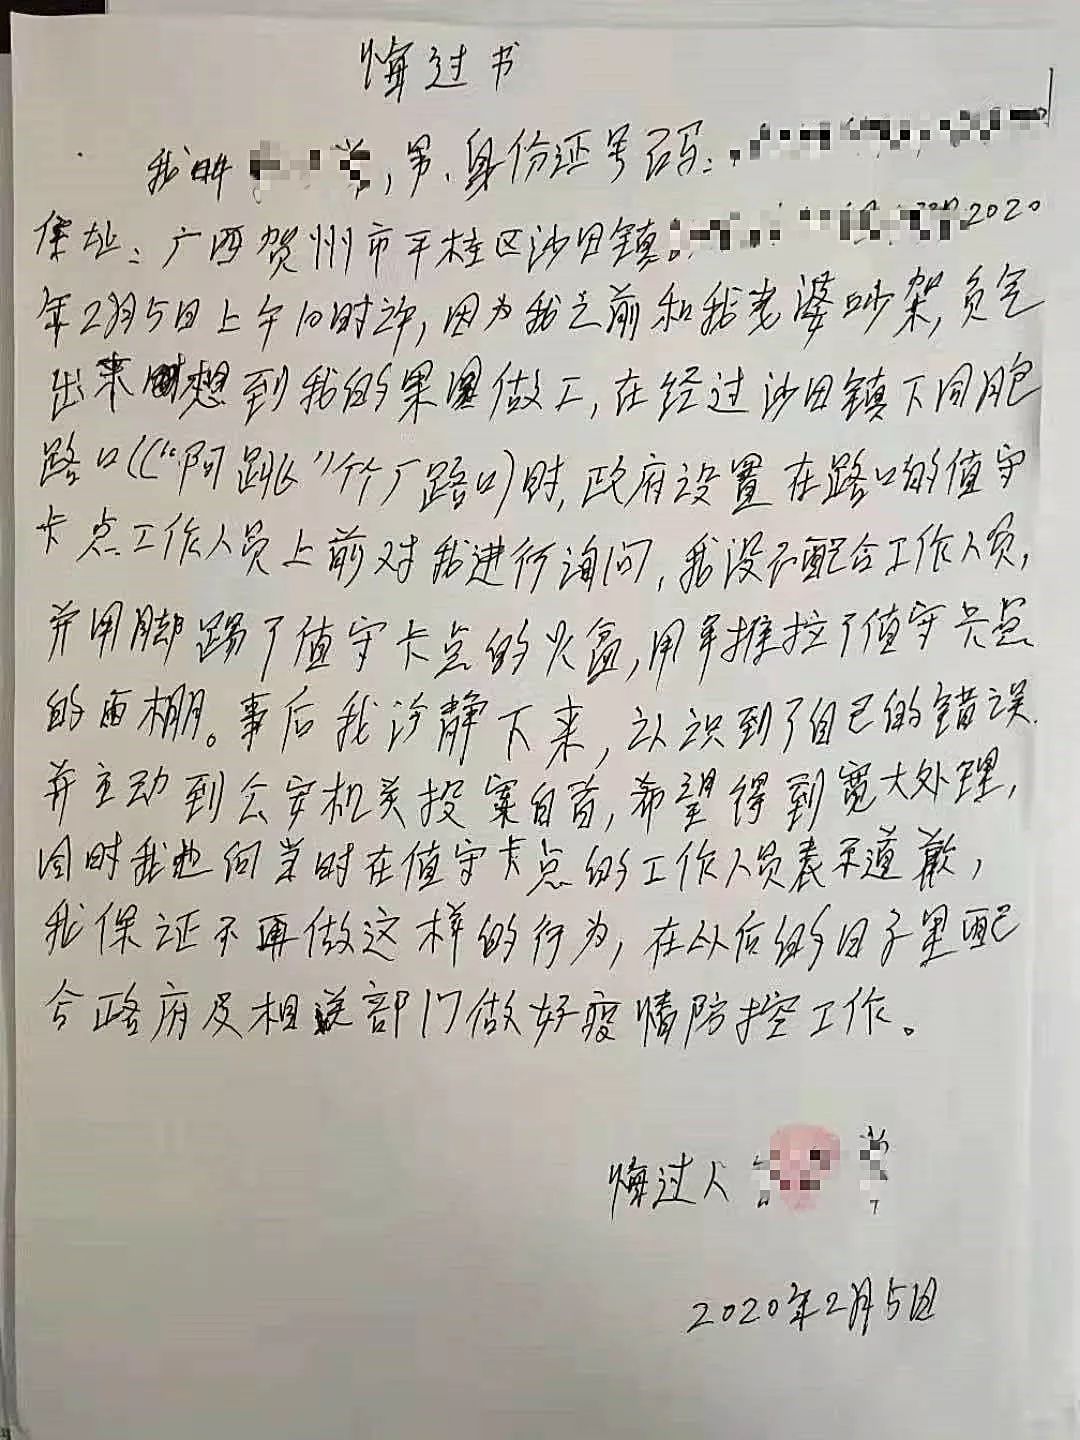 悔过书
我叫，男，身份证号码：
住址：广西贺州市平桂区沙田镇2020
年2月5日上午10时许，因为我之前和我老婆吵架，负气
出来想到我的果园做工，在经过沙田镇下同胞
路口(("阿跳"个厂路口)时，政府设置在路口的值守
卡点工作人员上前对我进行询问，我没不配合工作人员，
并用脚踢了值守卡点的火盆，用手推拉了值守卡点
的雨棚。事后我冷静下来，认识到了自己的错误，
并主动到公安机关投案自首，希望得到宽大处理，
同时我也向当时在值守卡点的工作人员表示道歉，
我保证不再做这样的行为，在以后的日子里配
合政府及相关部门做好疫情防控工作。
悔过人
2020年2月5日